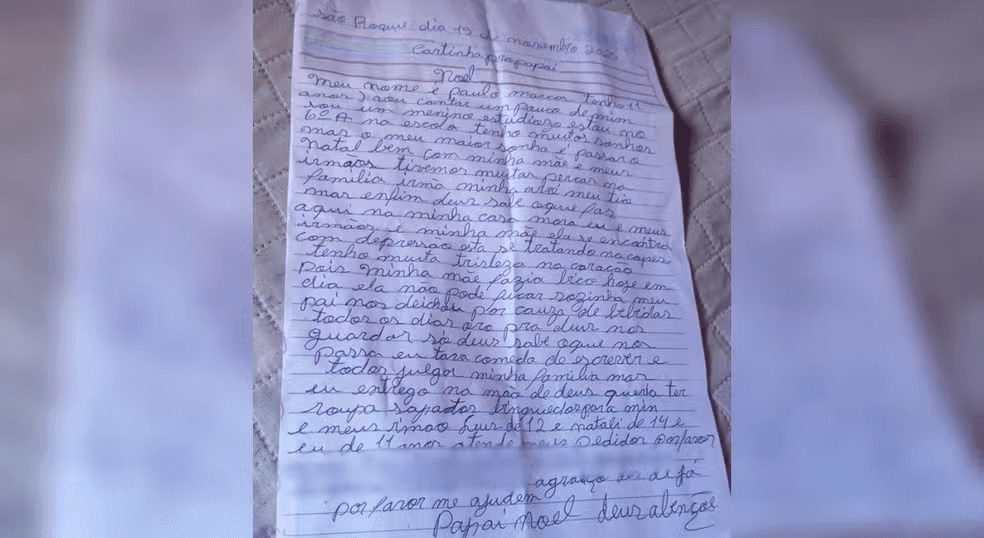 São Roque dia 19 de novembro
Cartinha pro papai
Noel
Meu nome é paulo marcos tenho 11
anos vou contar um pouco de mim
sou um menino estudiozo estou no
6º A na escola tenho muitos sonhos
mas o meu maior sonho é passar o
Natal bem com minha mãe e meus
irmãos tivemos muitas percas na
familia irmã minha avó meu tio
mas enfim deus sabe oque faz
aqui na minha casa mora eu e meus
irmãos e minha mãe ela se encontra
com depressão esta se tratando no capes
tenho muita tristeza no coração
pois minha mãe fazia bico hoje em
dia ela não pode ficar sozinha meu
pai nos deichou por cauza de bebidas
todos os dias oro pra deus nos
guardar só deus sabe oque nos
passa eu tava com de escrever e
todos julgar minha familia mas
eu entrego na mão de deus queria ter
roupa sapatos bringuedos para min
e meus irmão de 12 e natali de 14 e
eu de 11 anos atende meus pedidos por favor
já
por favor me ajudem
Papai Noel deus abençoe